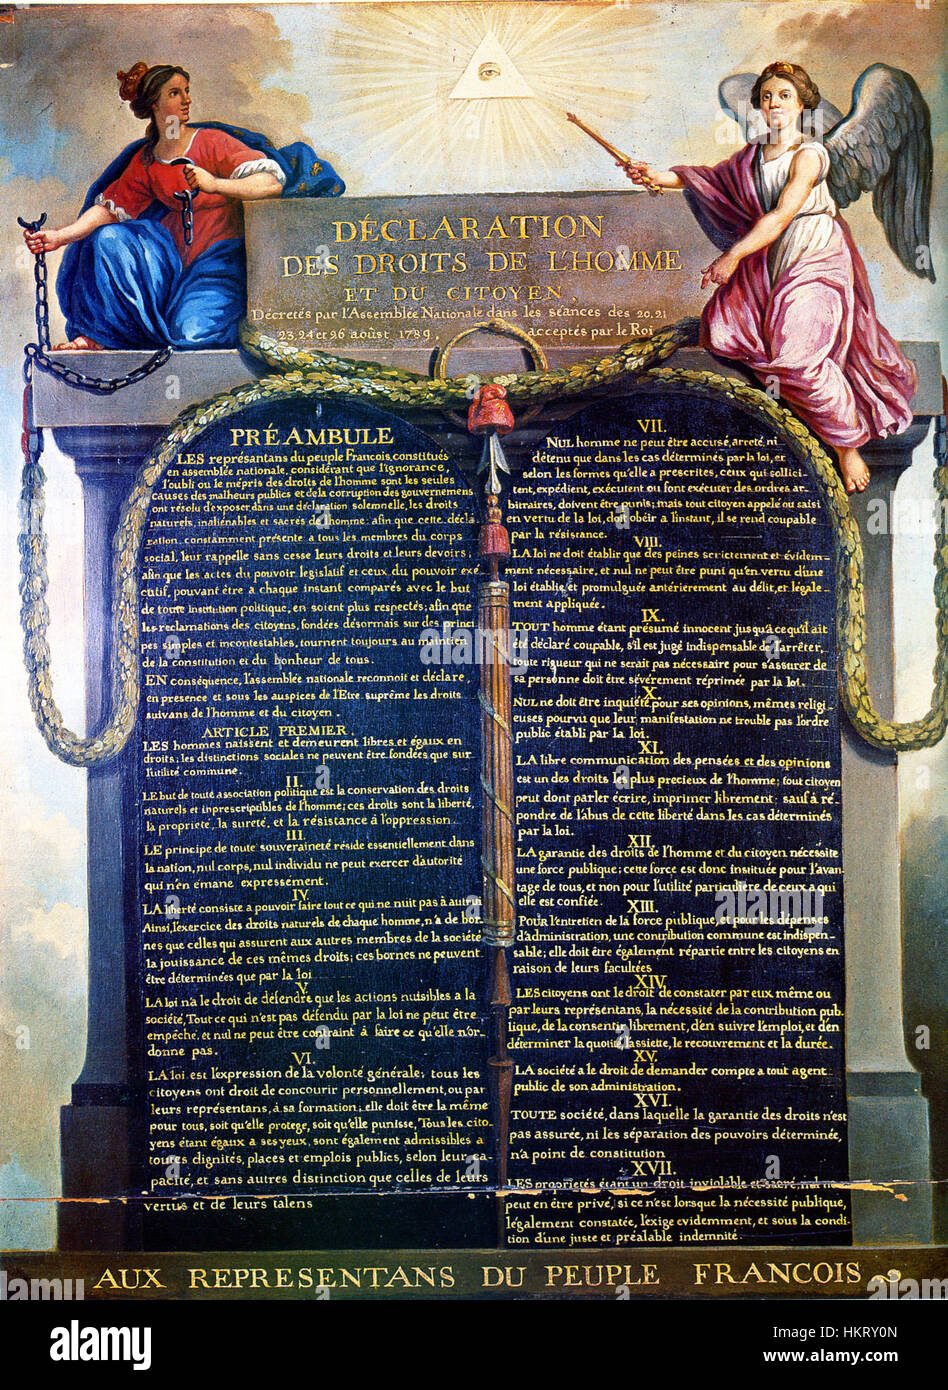 DÉCLARATION
DES DROITS DE L'HOMME
ET DU CITOYEN,
Décretés par l'Assemblée Nationale dans les séances des 20, 21
23, 24 et 26 août 1789, acceptés par le Roi
PRÉAMBULE
LES représantans du peuple Francois, constitués
en assemblée nationale, considérant que l'ignorance,
l'oubli ou le mépris des droits de l'homme sont les seules
causes des malheurs publics et de la corruption des gouvernemens
ont résolu d'exposer dans une déclaration solemnelle, les droits
naturels, inaliénables et sacrés de l'homme: afin que cette décla
ration, constamment présente a tous les membres du corps
social, leur rappelle sans cesse leurs droits et leurs devoirs,
afin que les actes du pouvoir législatif et ceux du pouvoir exé
cutif, pouvant être a chaque instant comparés avec le but
de toute institution politique, en soient plus respectés; afin que
les reclamations des citoyens, fondées désormais sur des princi
pes simples et incontestables, tournent toujours au maintien
de la constitution et du bonheur de tous.
EN conséquence, l'assemblée nationale reconnoit et déclare,
en presence et sous les auspices de l'Etre suprême les droits
suivans de l'homme et du citoyen.
ARTICLE PREMIER.
LES hommes naissent et demeurent libres et égaux en
droits; les distinctions sociales ne peuvent être fondées que sur
l'utilité commune.
II.
LE but de toute association politique est la conservation des droits
naturels et inprescriptibles de l'homme; ces droits sont la liberté,
la propriete, la sureté, et la résistance à l'oppression.
III.
LE principe de toute souveraineté réside essentiellement dans
la nation, nul corps, nul individu ne peut exercer d'autorité
qui n'en émane expressement.
IV.
LA liberté consiste a pouvoir faire tout ce qui ne nuit pas à autrui
Ainsi, l'exercice des droits naturels de chaque homme, n'a de bor-
nes que celles qui assurent aux autres membres de la société
la jouissance de ces mêmes droits; ces bornes ne peuvent
être déterminées que par la loi
V.
LA loi n'a le droit de défendre que les actions nuisibles a la
société, Tout ce qui n'est pas défendu par la loi ne peut être
empêche, et nul ne peut être contraint à faire ce qu'elle n'or-
donne pas.
VI.
LA loi est l'expression de la volonté générale; tous les
citoyens ont droit de concourir personnellement, ou par
leurs représentans, à sa formation; elle doit être la même
pour tous, soit qu'elle protege, soit qu'elle punisse, Tous les cito-
yens étant égaux a ses yeux, sont également admissibles a
toutes dignités, places et emplois publics, selon leur ca-
pacité, et sans autres distinction que celles de leurs
vertus et de leurs talens
VII.
NUL homme ne peut être accusé, arreté, ni
détenu que dans les cas déterminés par la loi, et
selon les formes qu'elle a prescrites, ceux qui sollici-
tent, expédient, exécutent ou font exécuter des ordres ar-
bitraires, doivent être punis; mais tout citoyen appelé ou saisi
en vertu de la loi, doit obéir a l'instant, il se rend coupable
par la résistance.
VIII.
LA loi ne doit établir que des peines strictement et évidem-
ment nécessaire, et nul ne peut être puni qu'en vertu d'une
loi établie, et promulguée antérierement au délit, et légale-
ment appliquée.
IX.
TOUT homme étant présumé innocent jusqu'a ce qu'il ait
été déclaré coupable, s'il est jugé indispensable de l'arrêter,
toute rigueur qui ne serait pas nécessaire pour s'assurer de
sa personne doit être sévèrement réprimée par la loi.
X.
NUL ne doit être inquiété pour ses opinions, mêmes religi-
euses pourvu que leur manifestation ne trouble pas l'ordre
public établi par la loi.
XI.
LA libre communication des pensées et des opinions
est un des droits les plus precieux de l'homme; tout citoyen
peut dont parler écrire, imprimer librement: sauf à ré-
pondre de l'abus de cette liberté dans les cas déterminés
par la loi.
XII.
LA garantie des droits de l'homme et du citoyen nécessite
une force publique; cette force est donc instituée pour l'avan-
tage de tous, et non pour l'utilité particuliere de ceux a qui
elle est confiée.
XIII.
POUR l'entretien de la force publique, et pour les dépenses
d'administration, une contribution commune est indispen-
sable; elle doit être également répartie entre les citoyens en
raison de leurs facultées
XIV.
LES citoyens ont le droit de constater par eux même ou
par leurs représentans, la nécessité de la contribution pub-
lique, de la consentir librement, d'en suivre l'emploi, et d'en
déterminer la quotité, l'assiette, le recouvrement et la durée.
XV.
LA société a le droit de demander compte a tout agent
public de son administration.
XVI.
TOUTE société, dans laquelle la garantie des droits n'est
pas assurée, ni les séparation des pouvoirs déterminée,
n'a point de constitution
XVII.
LES proprietés étant un droit inviolable et sacré, nul ne
peut en être privé, si ce n'est lorsque la nécessité publique,
légalement constatée, l'exige evidemment, et sous la condi
tion d'une juste et préalable indemnité.
AUX REPRESENTANS DU PEUPLE FRANCOIS
alamy
alamy stock photo
HKRY0N
www.alamy.com